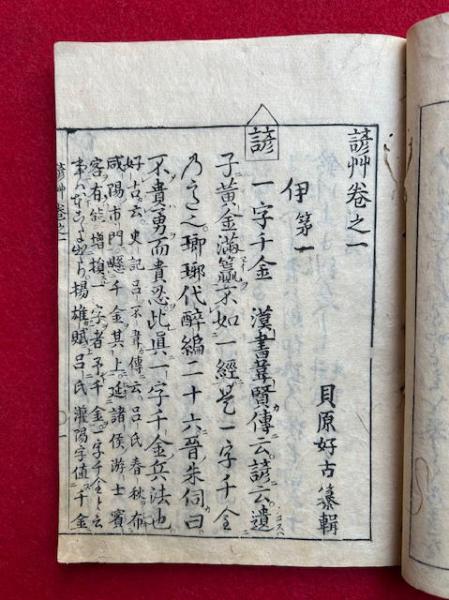 諺艸卷之一
貝原好古纂輯
伊第一
諺 一字千金 漢書韋賢傳云諺云遺
子黃金滿籯不如一經是一字千金
乃こと之瑯琊代醉編二十六晉朱伺曰
不貴勇而貴忍此眞一字千金兵法也
好古云史記呂不韋傳云呂氏春秋布
咸陽市門懸千金其上延諸侯游士賓
客有能增損一字者予千金一字千金と云
事ハ是より出たり揚雄賦呂氏淮陽字值千金
諺艸卷之一